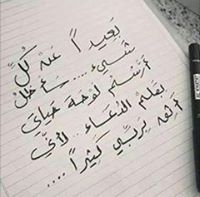 بعيداً عن كُلّ
شيء .... سأظل
أرسم لوحة حياتي
بقلم الدعاء .. لأني
أثق بربي كثيراً ....